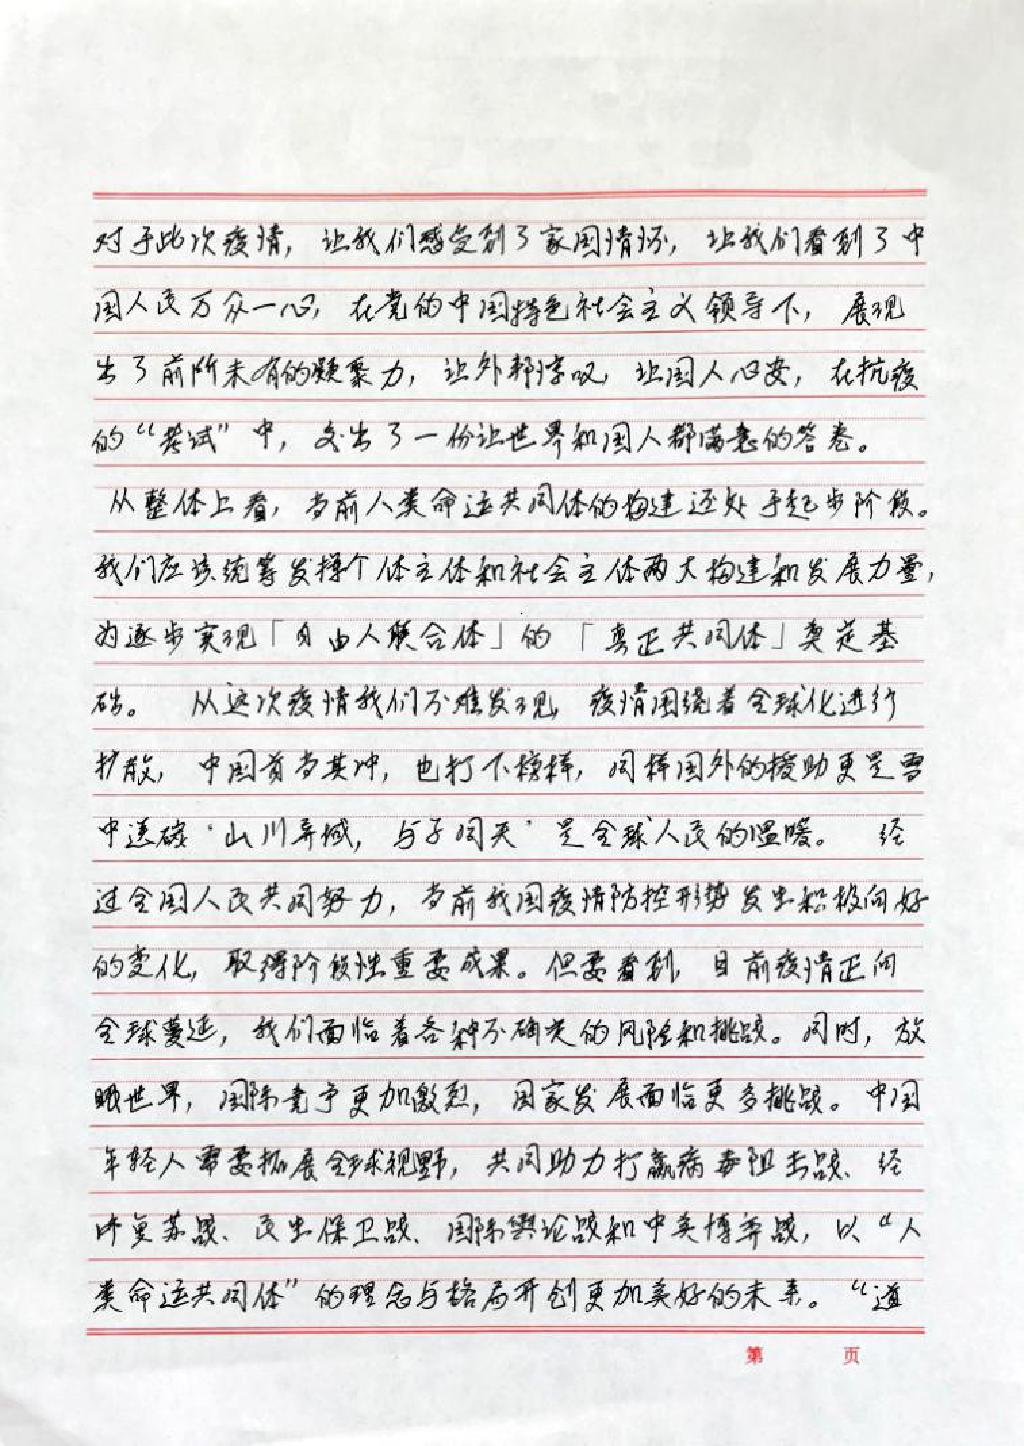 对于此次疫情，让我们感受到了家国情怀，让我们看到了中
国人民万众一心，在党的中国特色社会主义领导下，展现
出了前所未有的凝聚力，让外邦惊叹，让国人心安，在抗疫
的“考试”中，交出了一份让世界和国人都满意的答卷。
从整体上看，当前人类命运共同体的构建还处于起步阶段。
我们应该统筹发挥个体主体和社会主体两大构建和发展力量，
为逐步实现「自由人联合体」的「真正共同体」奠定基
础。 从这次疫情我们不难发现，疫情围绕着全球化进行
扩散，中国首当其冲，也打下榜样，同样国外的援助更是雪
中送碳“山川异域，与子同天”是全球人民的温暖。 经
过全国人民共同努力，当前我国疫情防控形势发生积极向好
的变化，取得阶段性重要成果。但要看到，目前疫情正向
全球蔓延，我们面临着各种不确定的风险和挑战。同时，放
眼世界，国际竞争更加激烈，国家发展面临更多挑战。中国
年轻人需要拓展全球视野，共同助力打赢病毒阻击战、经
济复苏战、民生保卫战、国际舆论战和中美博弈战，以“人
类命运共同体”的理念与格局开创更加美好的未来。“道
第 页